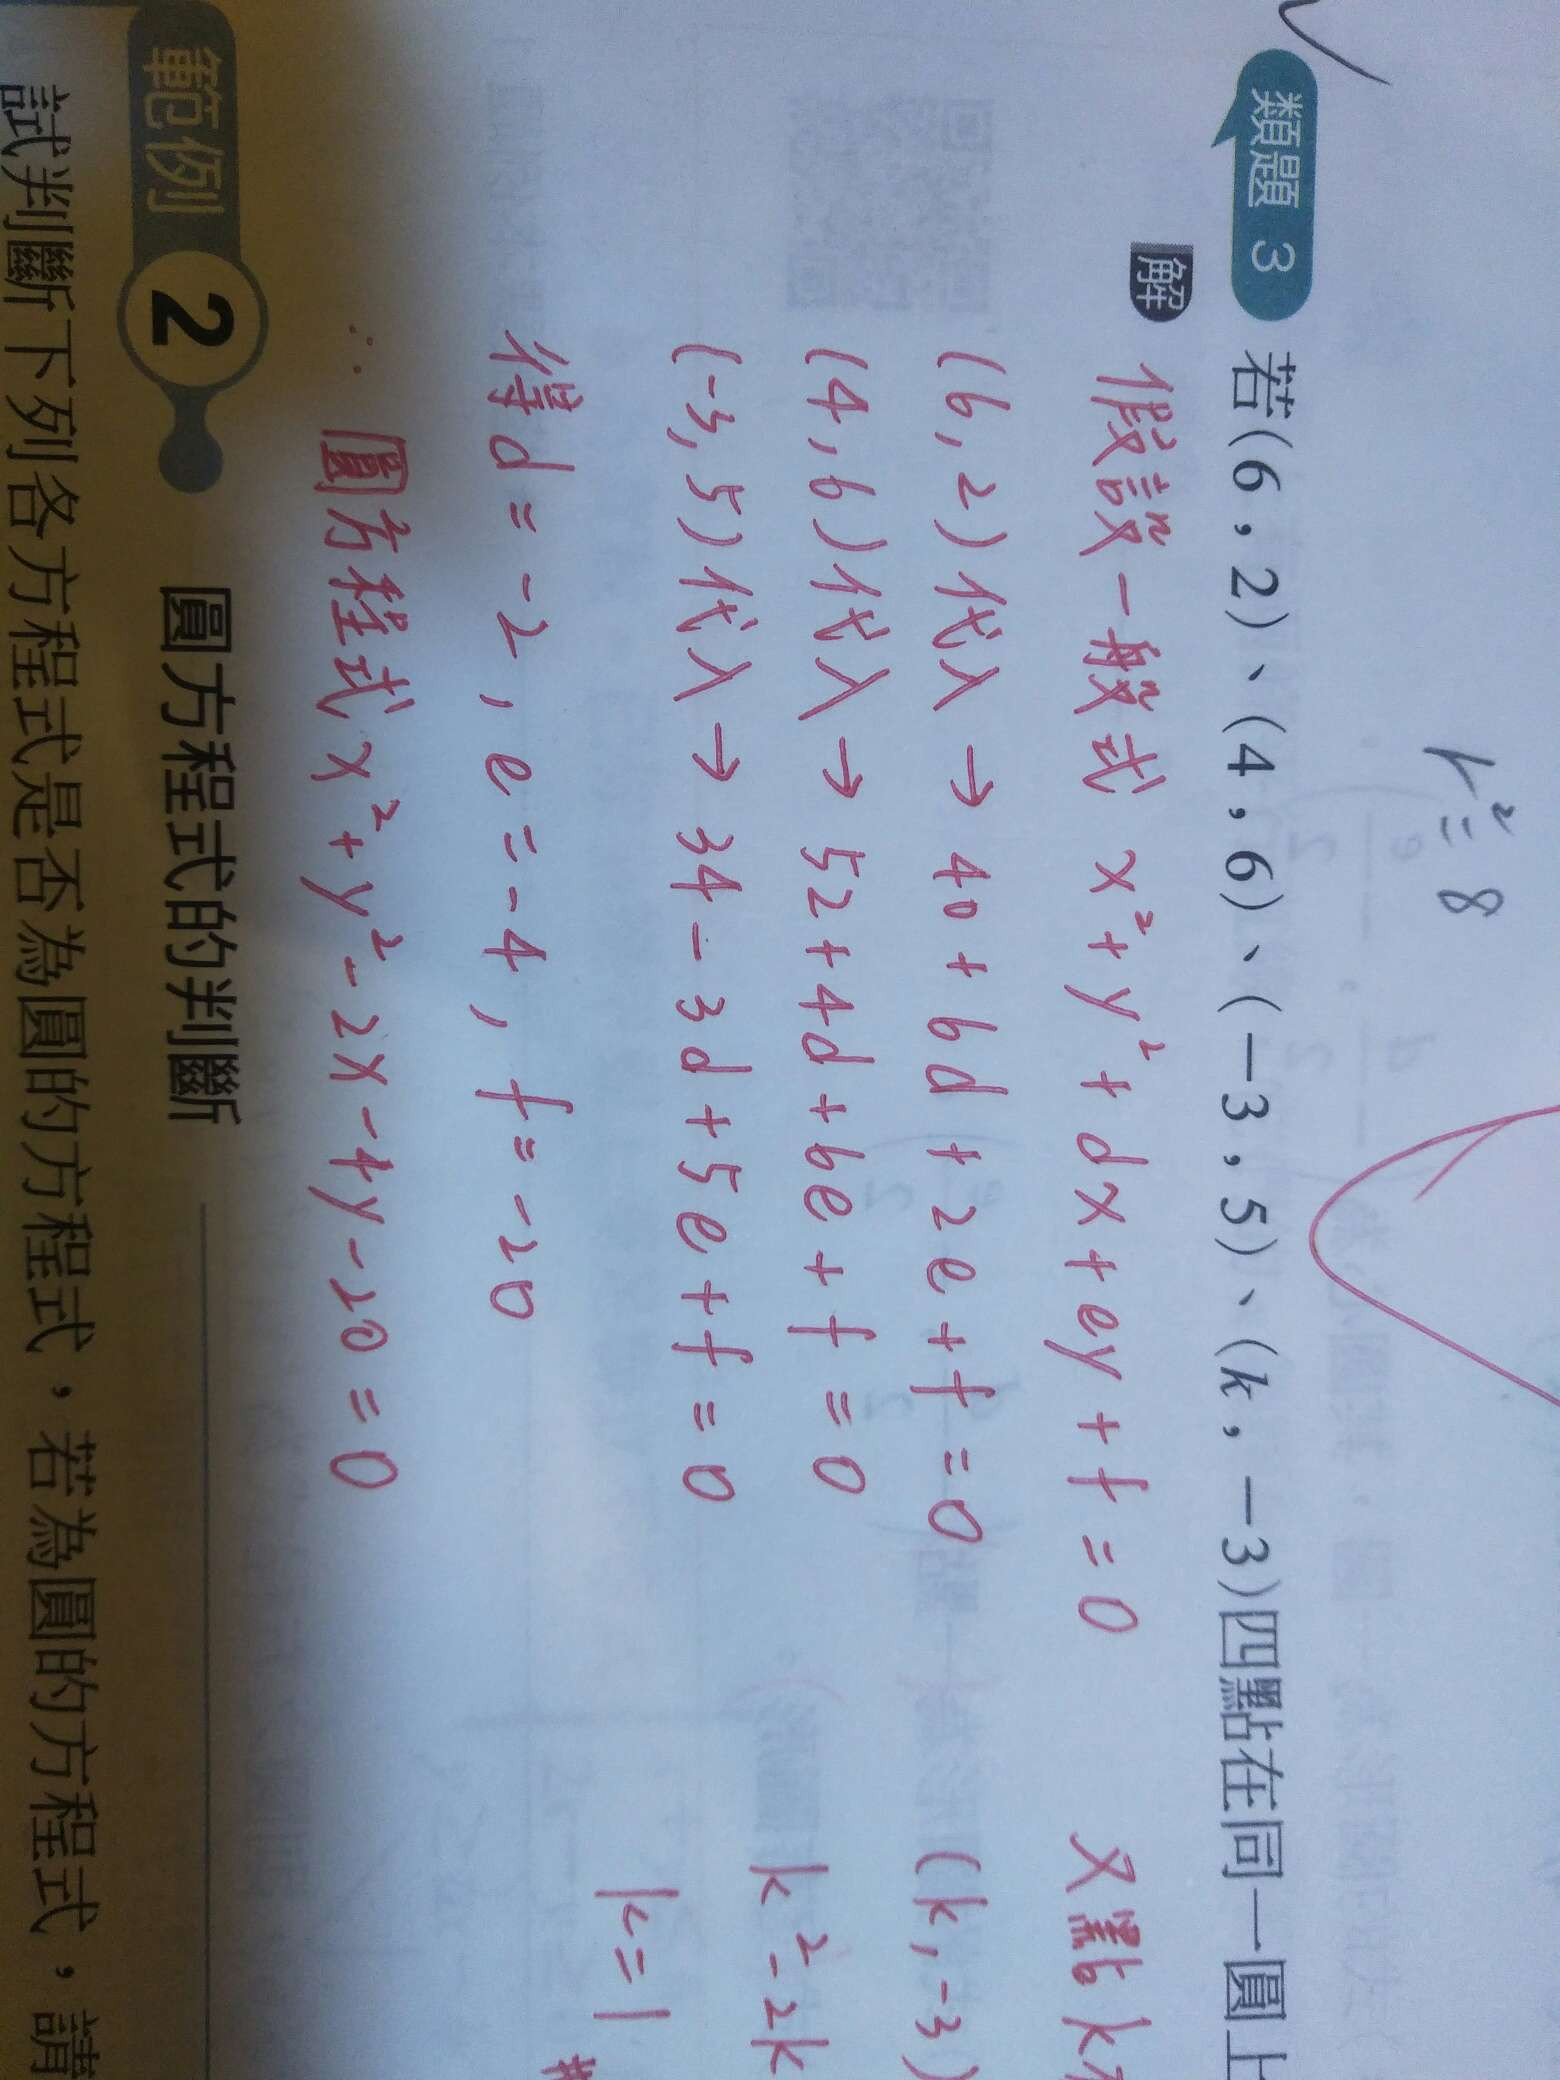 r² = 8
類題 3 若(6,2)、(4,6)、(-3,5)、(k,-3)四點在同一圓上
解 假設一般式 x²+y²+dx+ey+f=0 又點k
(6,2)代入→40+6d+2e+f=0 (k,-3)
(4,6)代入→52+4d+6e+f=0 k²-2k
(-3,5)代入→34-3d+5e+f=0 k=1
得d=-2,e=-4,f=-20 #
∴圓方程式x²+y²-2x-4y-20=0
範例 2 圓方程式的判斷
試判斷下列各方程式是否為圓的方程式,若為圓的方程式,請